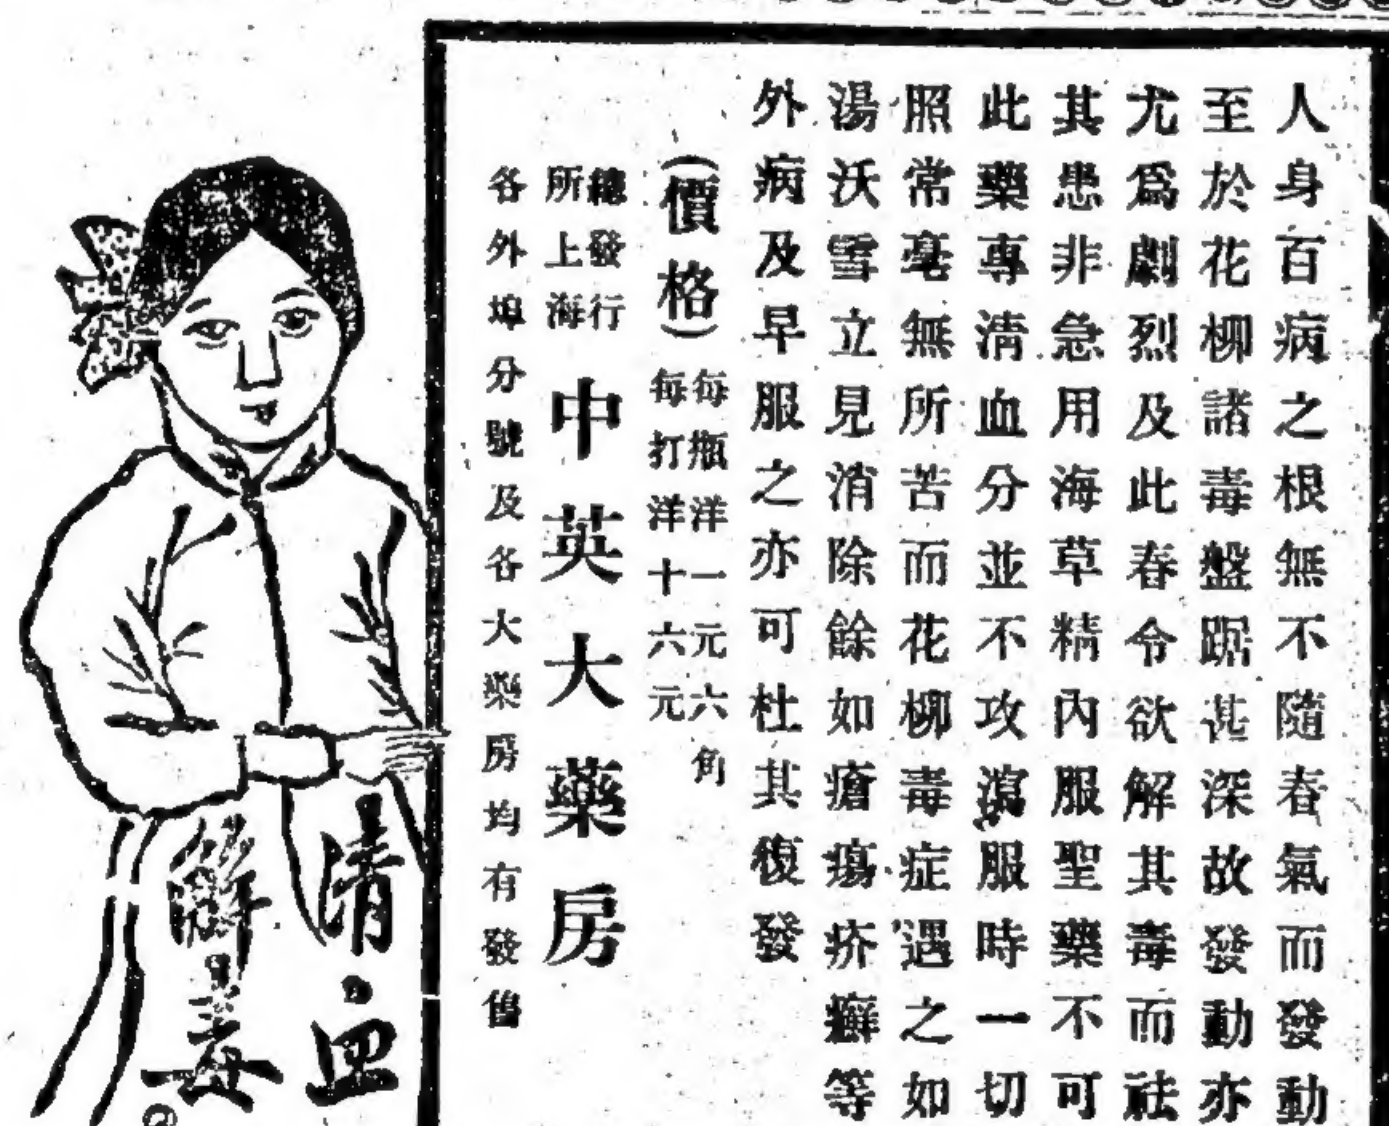 人身百病之根無不隨春氣而發動
至於花柳諸毒盤踞甚深故發動亦
尤爲劇烈及此春令欲解其毒而祛
其患非急用海草精內服聖藥不可
此藥專淸血分並不攻瀉服時一切
照常毫無所苦而花柳毒症遇之如
湯沃雪立見消除餘如瘡瘍疥癬等
外病及早服之亦可杜其復發
(價格)
每瓶洋一元六角
每打洋十六元
總發行
所上海
中英大藥房
各外埠分號及各大藥房均有發售
清血
解毒